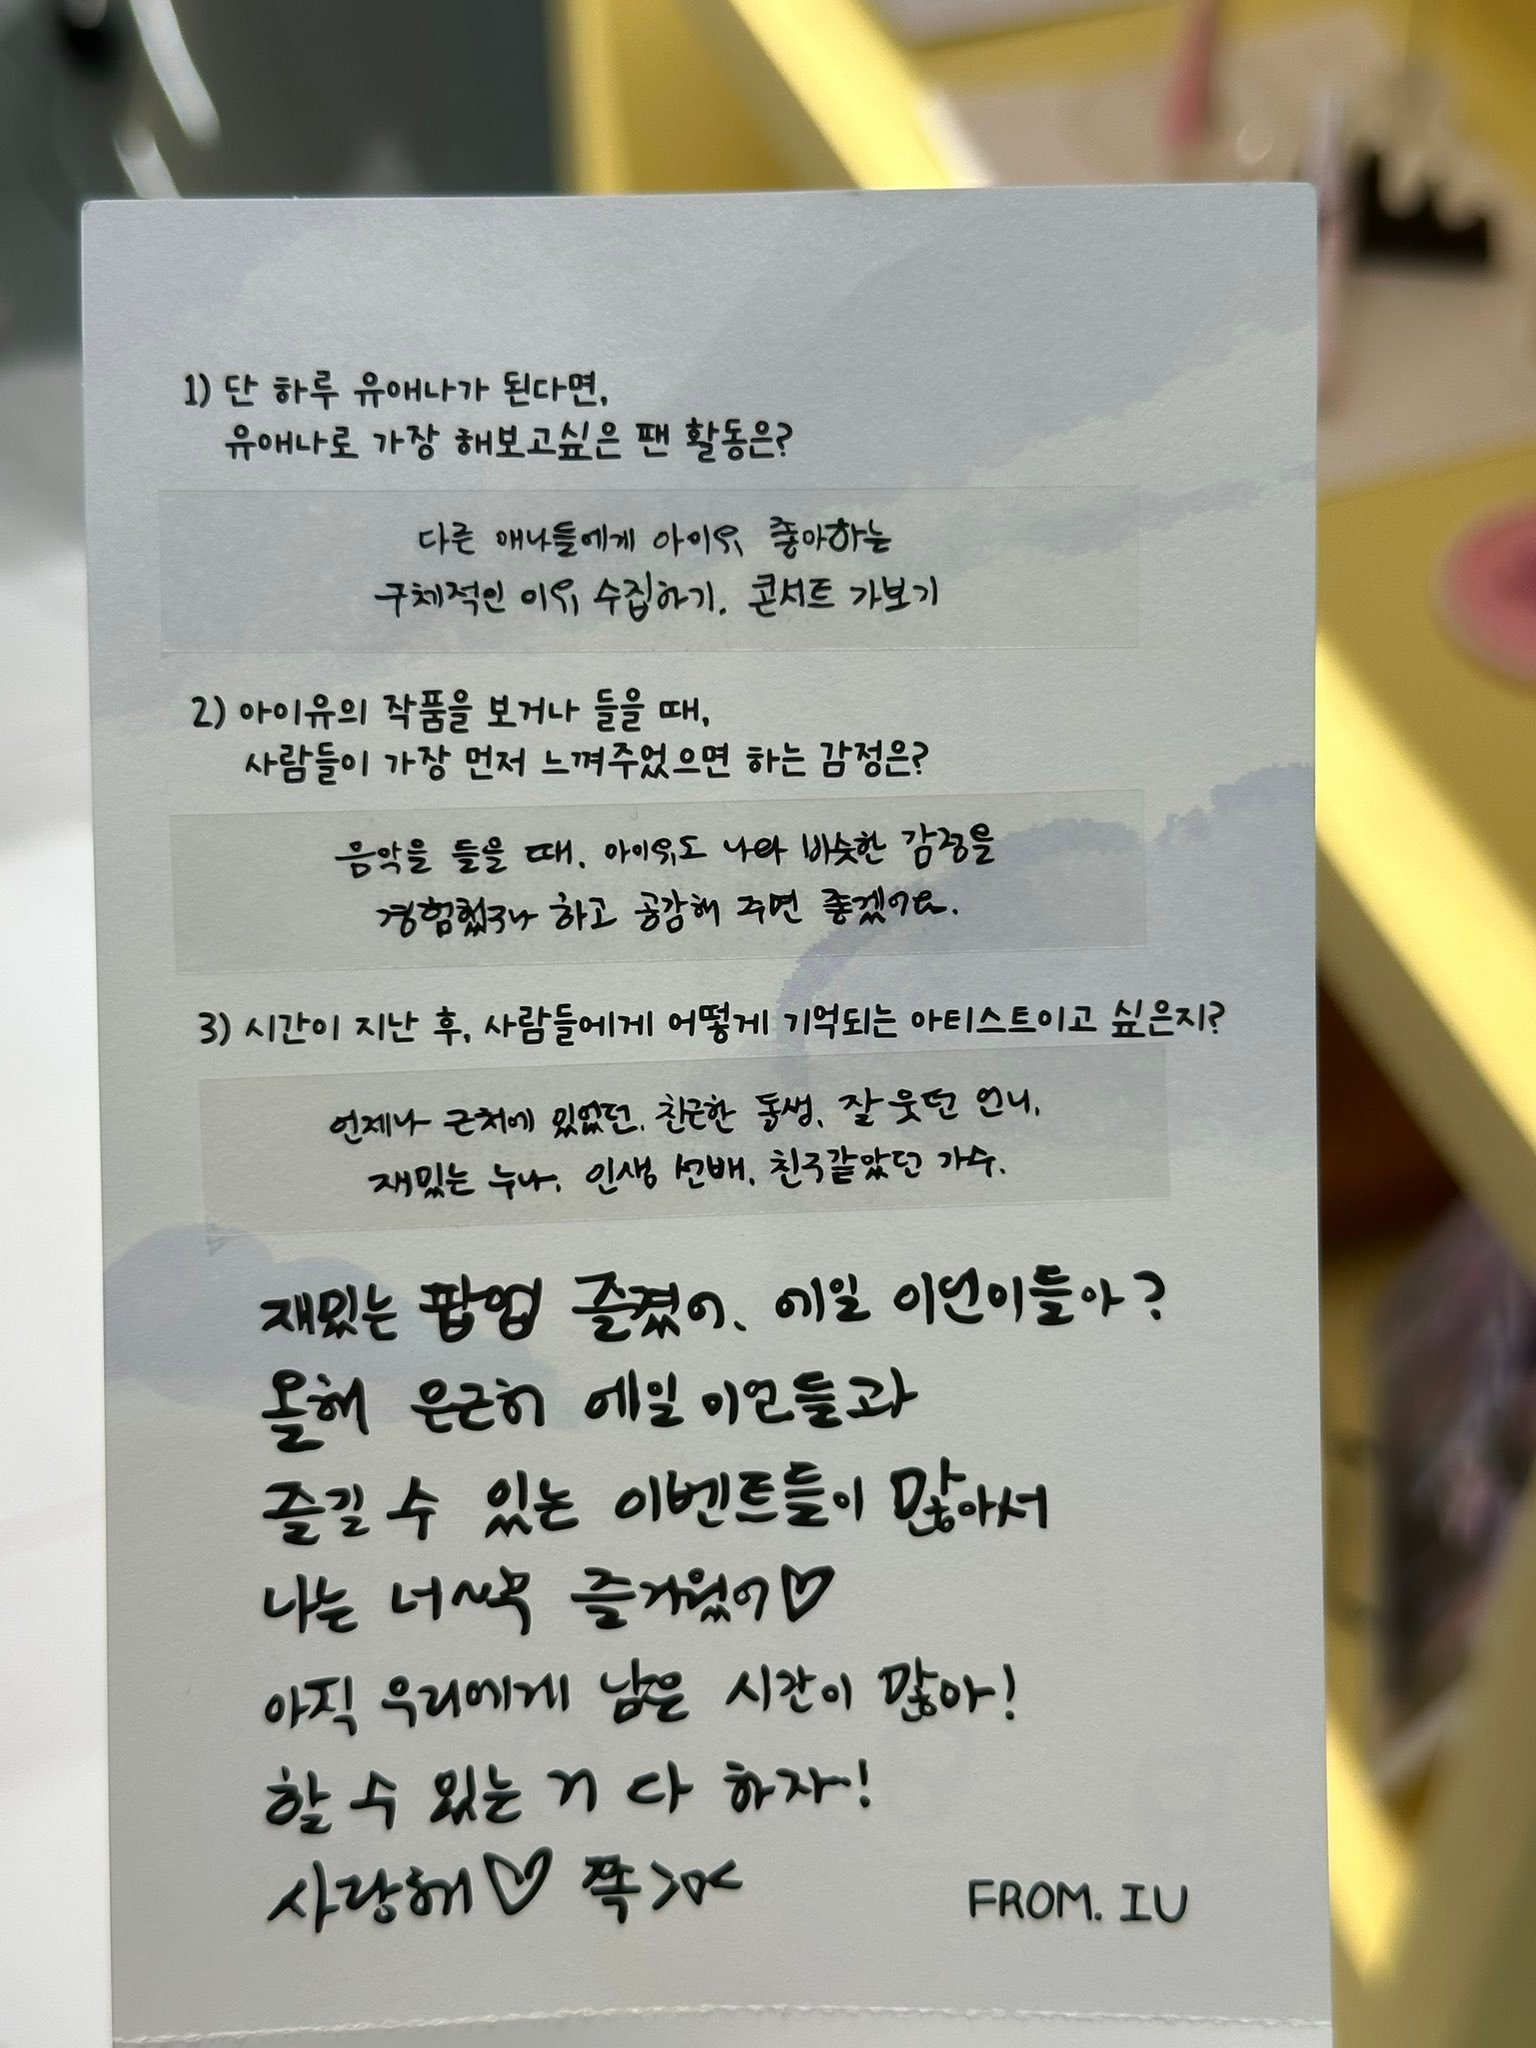 1) 단 하루 유애나가 된다면,
유애나로 가장 해보고싶은 팬 활동은?
다른 애나들에게 아이유 좋아하는
구체적인 이유 수집하기. 콘서트 가보기
2) 아이유의 작품을 보거나 들을 때,
사람들이 가장 먼저 느껴주었으면 하는 감정은?
음악을 들을 때. 아이유도 나와 비슷한 감정을
경험했구나 하고 공감해 주면 좋겠어요.
3) 시간이 지난 후, 사람들에게 어떻게 기억되는 아티스트이고 싶은지?
언제나 근처에 있었던. 친근한 동생, 잘 웃던 언니,
재밌는 누나, 인생 선배, 친구같았던 가수.
재밌는 팝업 즐겼어, 에일 이언이들아?
올해 은근히 에일 이언들과
즐길 수 있는 이벤트들이 많아서
나는 너~무 즐거웠어♡
아직 우리에게 남은 시간이 많아!
할 수 있는 거 다 하자!
사랑해♡ 쪽>ㅁ<
FROM. IU